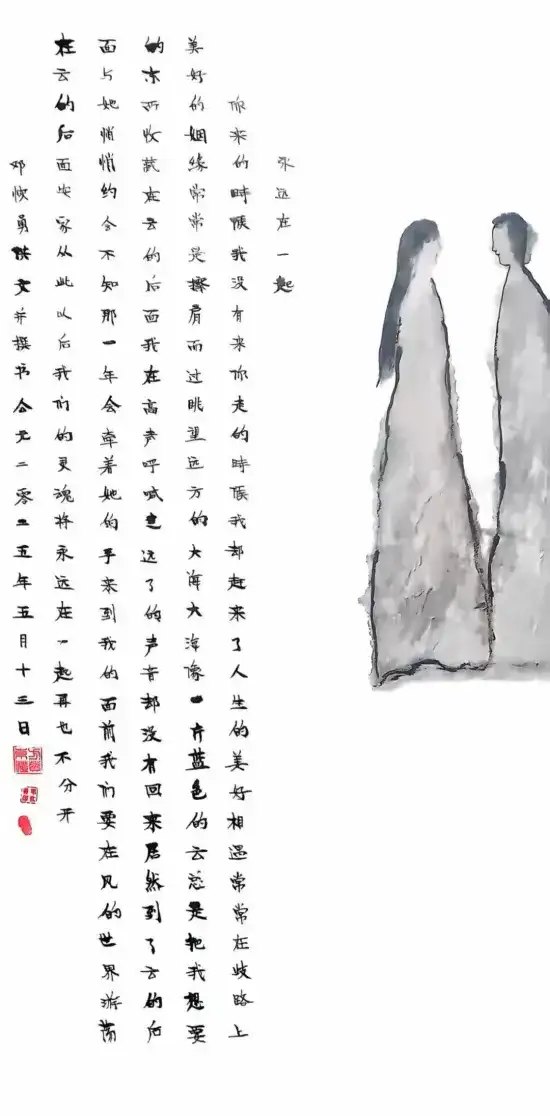 永远在一起
你来的時候我没有来你走的時候我却赶来了人生的美好相遇常常在歧路上
美好的姻缘常常是擦肩而过眺望远方的大海大洋像一片蓝色的云总是把我想要
的东西收藏在云的后面我在高声呼喊走远了的声音却没有回来居然到了云的后
面与她悄悄约会不知那一年会牵着她的手来到我的面前我们要在风的世界游荡
在云的后面安家从此以后我们的灵魂将永远在一起再也不分开
邓勇文并撰书公元二零二五年五月十三日